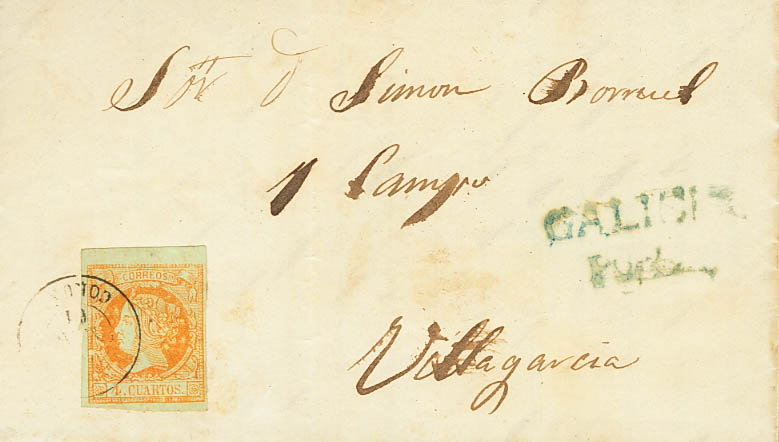 Sor d Simon Borruel
y Campo
GALICIA
CORREOS
CUARTOS.
Villagarcia